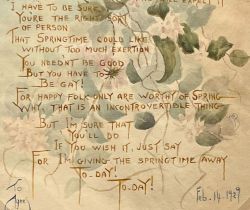 I HAVE TO BE SURE
YOU'RE THE RIGHT SORT
OF PERSON
THAT SPRINGTIME COULD LIKE
WITHOUT TOO MUCH EXERTION
YOU NEEDN'T BE GOOD
BUT YOU HAVE TO
BE GAY!
FOR HAPPY FOLK ONLY ARE WORTHY OF SPRING
WHY, THAT IS AN INCONTROVERTIBLE THING
BUT I'M SURE THAT
YOU'LL DO
IF YOU WISH IT, JUST SAY
FOR I'M GIVING THE SPRINGTIME AWAY
TO-DAY!
TO-DAY!
To
Feb. 14. 1929